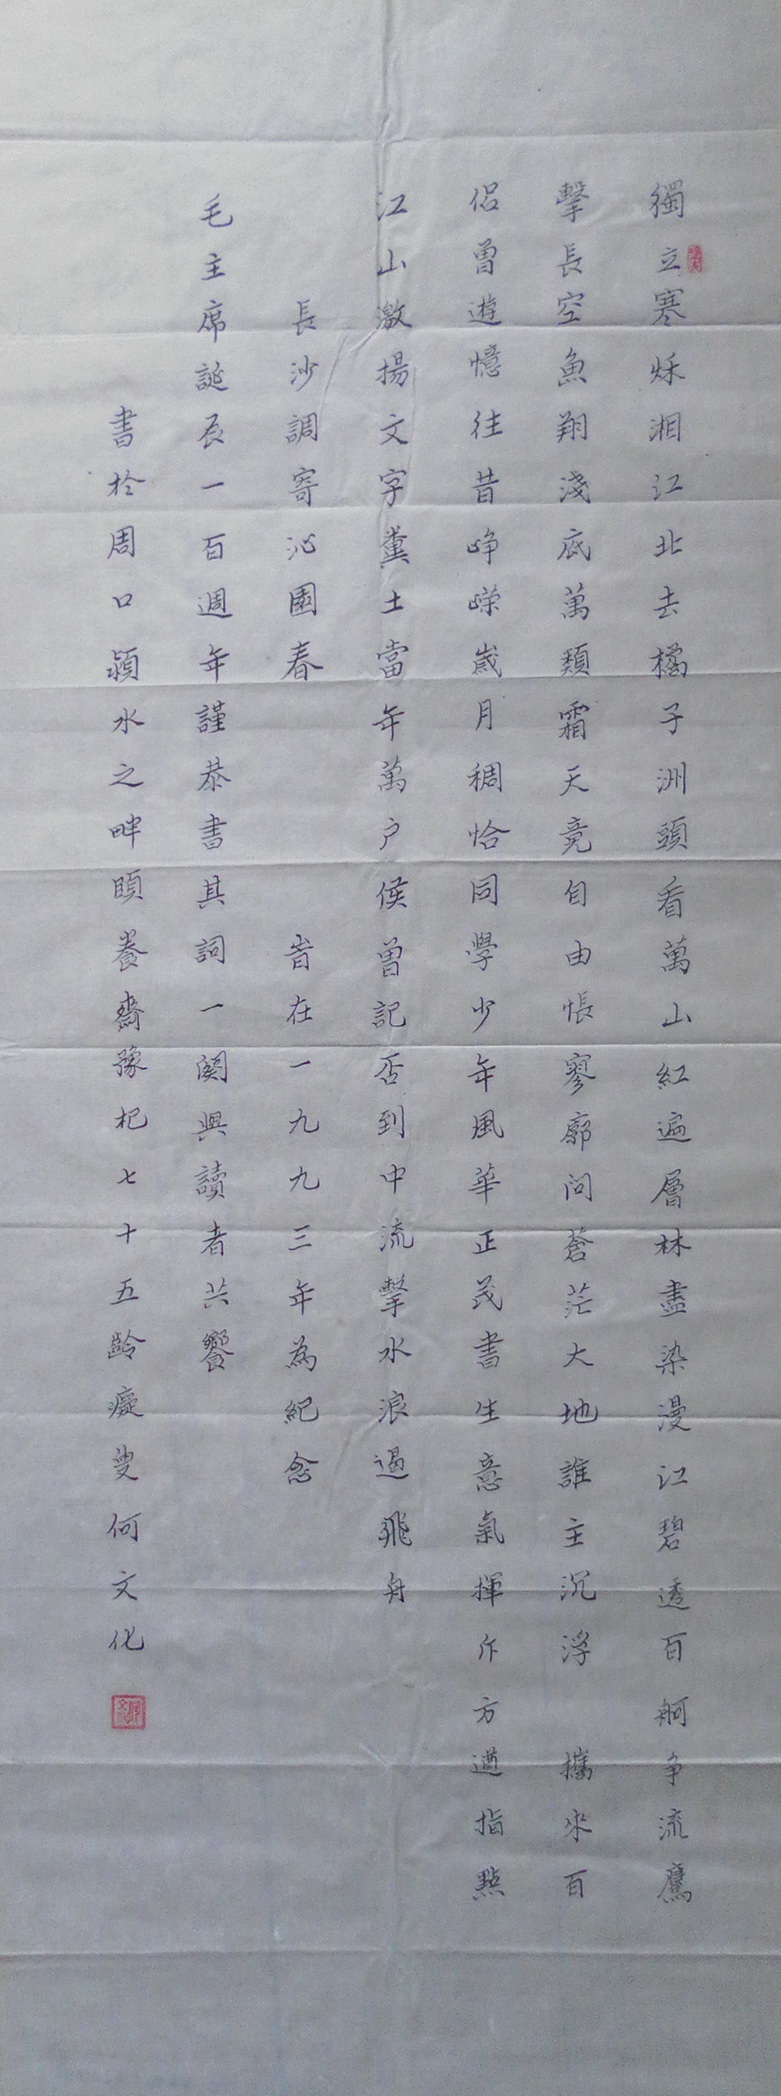 獨立寒秌湘江北去橘子洲頭看萬山紅遍層林盡染漫江碧透百舸争流鷹
擊長空魚翔淺底萬類霜天竞自由悵寥廓问蒼茫大地誰主沉浮攜來百
侣曾遊憶往昔峥嵘歲月稠恰同學少年風華正茂書生意氣揮斥方遒指點
江山激揚文字糞土當年萬户侯曾記否到中流擊水浪遏飛舟
長沙調寄沁園春 旹在一九九三年為紀念
毛主席誕辰一百週年謹恭書其詞一闋與讀者共饗
書於周口潁水之畔頤養齋豫杞七十五齡癡叟何文化